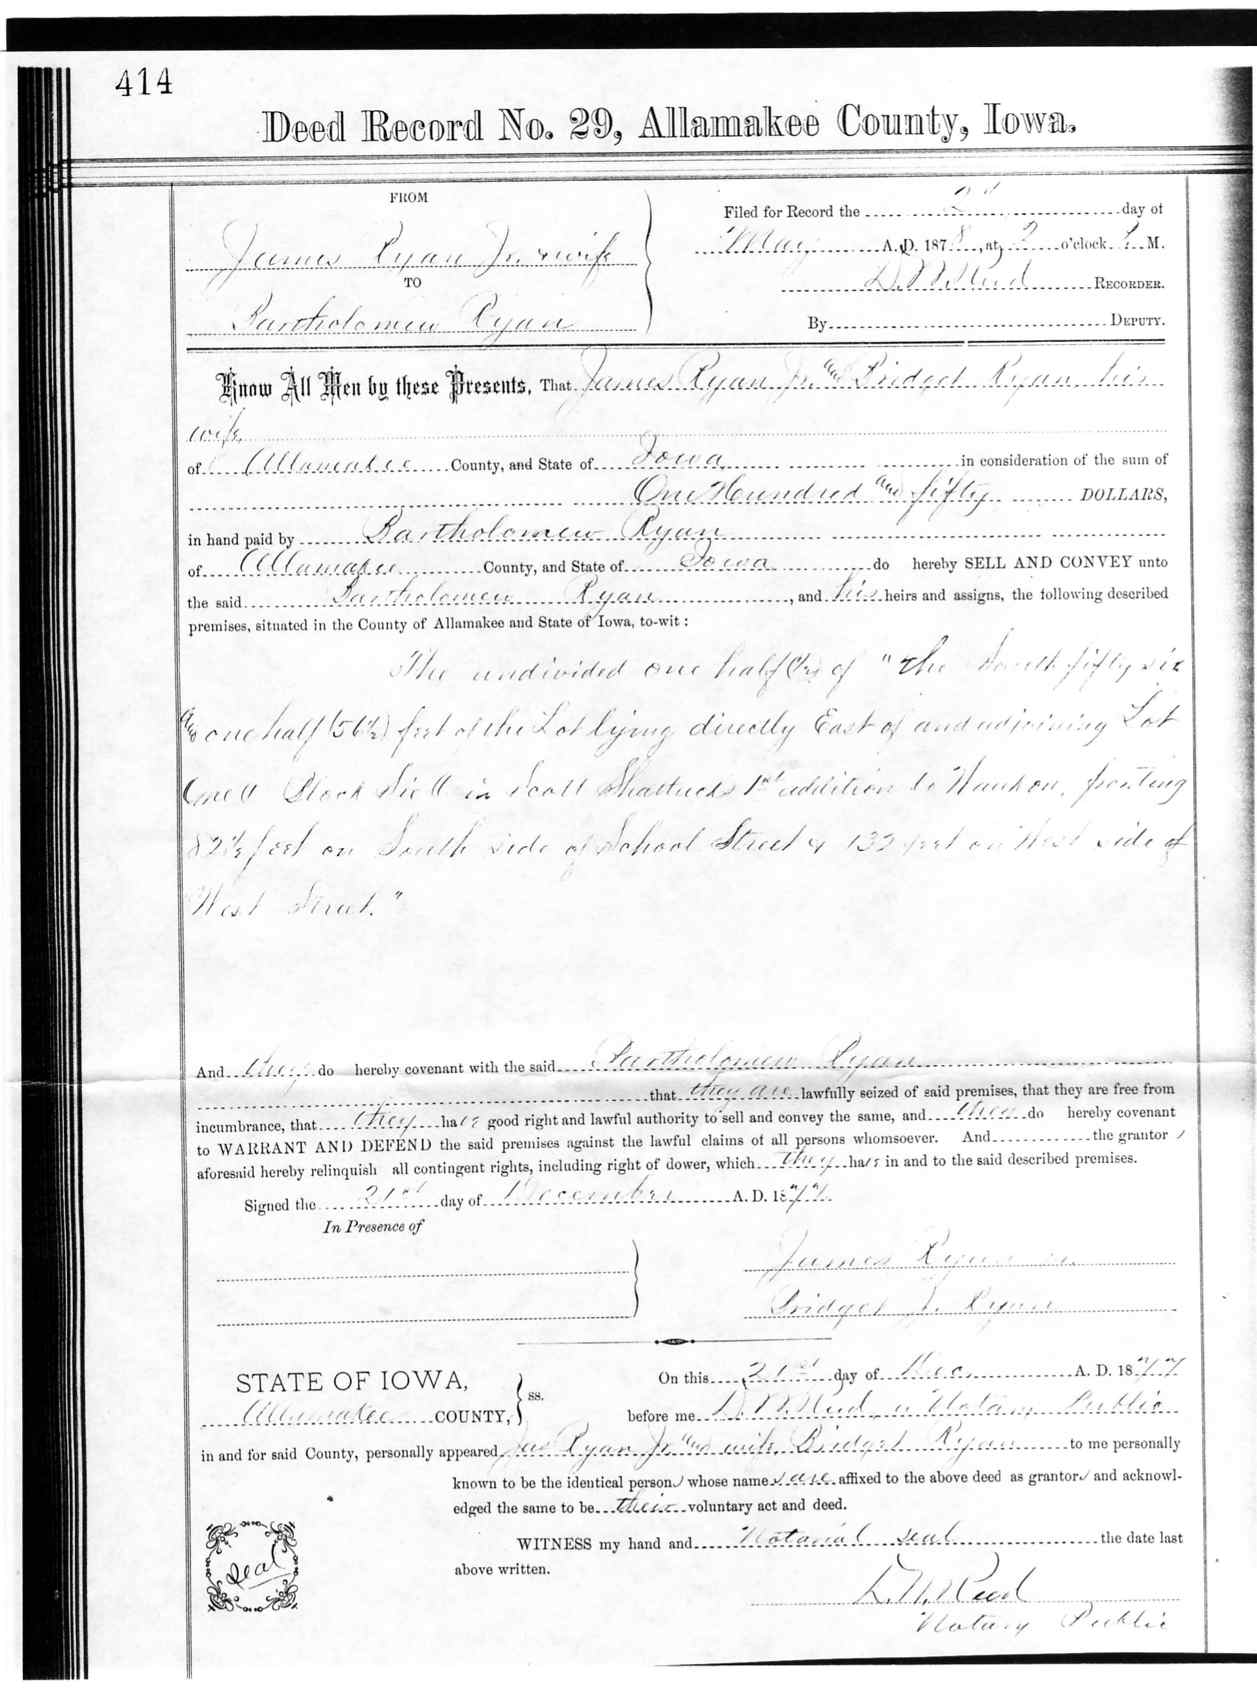 414
Deed Record No. 29, Allamakee County, Iowa.
FROM
James Ryan Jr. & wife
TO
Bartholomew Ryan
Filed for Record the 2d day of
May A. D. 1878, at 2 o'clock P. M.
RECORDER.
By DEPUTY.
Know All Men by these Presents, That James Ryan Jr. and Bridget Ryan his
wife
of Allamakee County, and State of Iowa in consideration of the sum of
One Hundred and fifty DOLLARS,
in hand paid by Bartholomew Ryan
of Allamakee County, and State of Iowa do hereby SELL AND CONVEY unto
the said Bartholomew Ryan, and his heirs and assigns, the following described
premises, situated in the County of Allamakee and State of Iowa, to-wit:
The undivided one half (½) of "the South fifty six
and one half (56½) feet of the Lot lying directly East of and adjoining Lot
One (1) Block Six (6) in Scott Shattucks 1st addition to Waukon, fronting
82½ feet on South side of School Street & 132 feet on West side of
West Street."
And they do hereby covenant with the said Bartholomew Ryan
that they are lawfully seized of said premises, that they are free from
incumbrance, that they have good right and lawful authority to sell and convey the same, and they do hereby covenant
to WARRANT AND DEFEND the said premises against the lawful claims of all persons whomsoever. And the grantors
aforesaid hereby relinquish all contingent rights, including right of dower, which they have in and to the said described premises.
Signed the 21st day of December A. D. 1877.
In Presence of
James Ryan Jr.
Bridget J. Ryan
STATE OF IOWA,
Allamakee COUNTY, ss.
On this 21st day of Dec. A. D. 1877
before me Reed, a Notary Public
in and for said County, personally appeared Jas Ryan Jr. and wife Bridget Ryan to me personally
known to be the identical persons whose names are affixed to the above deed as grantors and acknowl-
edged the same to be their voluntary act and deed.
WITNESS my hand and Notarial seal the date last
above written.
seal
Reed
Notary Public